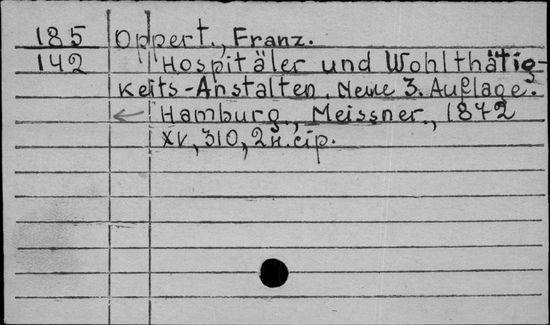 185 Oppert., Franz.
142 Hospitäler und Wohlthätig-
keits-Anstalten. Neue 3. Auflage.
Hamburg., Meissner., 1872
XV, 310, 2 н. стр.